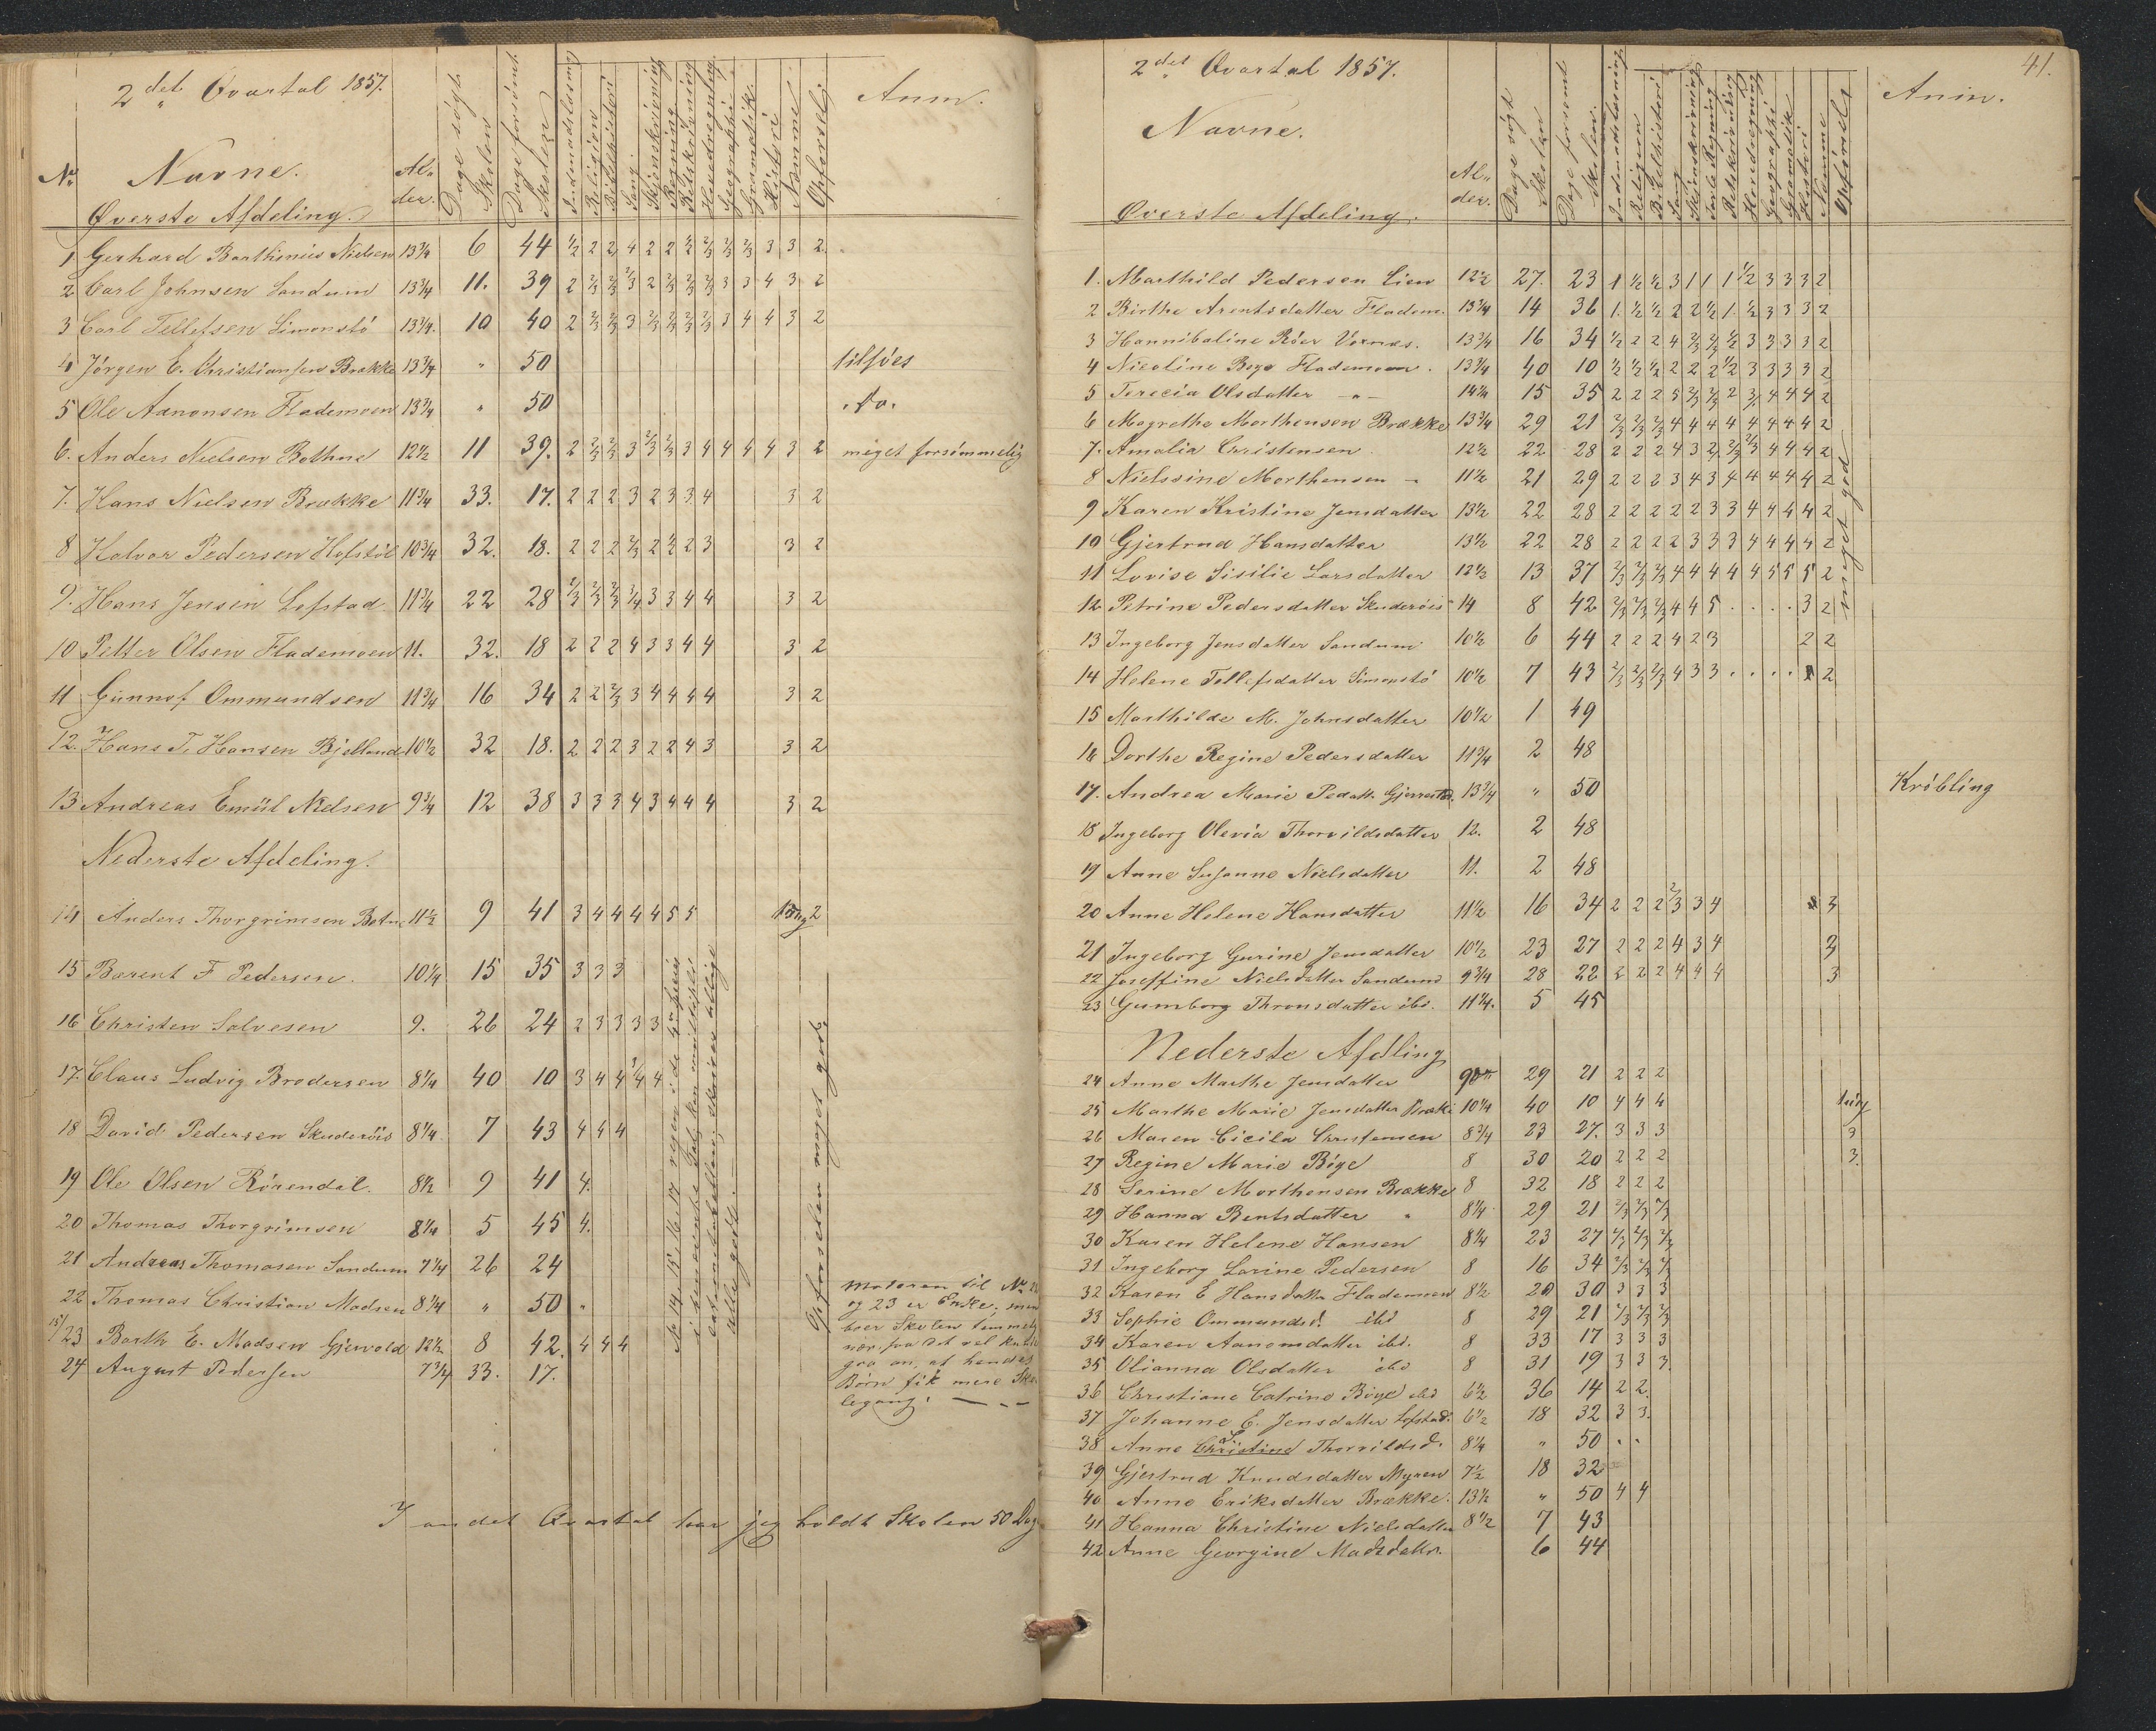 2det Qvartal 1857.
No Navne. Alder. Dage søgt Skolen Dage forsømt Skolen Indenadslæsning Religion Bibelhistori Sang Skjønskrivning Regning Retskrivning Hovedregning Geographi Gramatik Histori Nemme Opførsel Anm.
Øverste Afdeling.
1 Gerhard Barthineus Nielsen 13 1/4 6 44 1/2 2 2 4 2 2 1/2 2/3 2/3 2/3 3 3 2
2 Carl Johnsen Sandum 13 3/4 11. 39 2 2/3 2/3 2/3 2 2/3 2/3 2/3 3 3 4 3 2
3 Carl Tellefsen Simonstö 13 1/4. 10 40 2 2/3 2/3 3 2/3 2/3 2/3 2/3 3 4 4 3 2
4 Jörgen E. Christiansen Brække 13 3/4 " 50 tilsöes
5 Ole Aanonsen Flademoen 13 3/4 " 50 .do.
6. Anders Nielsen Bothne 12 1/2 11 39. 2 2/3 2/3 3 2/3 2/3 3 4 4 4 4 3 2 meget forsömmelig
7. Hans Nielsen Brække 11 3/4 33. 17. 2 2 2 3 2 3 3 4 3 2
8 Halvor Pedersen Hofstöl 10 3/4 32. 18. 2 2 2 2/3 2 1/2 2 3 3 2
9. Hans Jensen Lofstad 11 3/4 22 28 2/3 2/3 2/3 3/4 3 3 4 4 3 2
10 Petter Olsen Flademoen 11. 32. 18 2 2 2 4 3 3 4 4 3 2
11 Gunnof Ommundsen 11 3/4 16 34 2 2 2/3 3 4 4 4 4 3 2
12. Hans T. Hansen Bjelland 10 1/2 32 18. 2 2 2 3 2 2 4 3 3 2
13 Andreas Emiil Nielsen 9 3/4 12 38 3 3 3 4 3 4 4 4 3 2
Nederste Afdeling.
14 Anders Thorgrimsen Botne 11 1/2 9 41 3 4 4 4 4 5 5 2
15 Barent F Pedersen. 10 1/4 15 35 3 3 3
16 Christen Salvesen 9. 26 24 2 3 3 3 3
17. Claus Ludvig Brodersen 8 1/4 40 10 3 4 4 3/4 4
18 David Pedersen Skuderöis 8 1/4. 7 43 4 4 4
19 Ole Olsen Rörendal. 8 1/2 9 41 4.
20 Thomas Thorgrimsen 8 1/4 5 45 4.
21 Andreas Thomasen Sandum 7 1/4 26 24
22 Thomas Christian Madsen 8 1/4 " 50 "
23 Barth E. Madsen Gjervold 12 1/2 8 42. 4 4 4
24 August Pedersen 7 3/4 33. 17.
No 14. 15. 16. 17 regner i de 4
Opförselen meget god.
Moderen til No 22
og 23 er Enke, men
boer Skolen temmelig
nær, saa det vel kunde
gaa an, at hendes
Börn fik mere Sko-
legang. — „ —
I andet Qvartal har jeg holdt Skolen 50 Dag
41.
2det Qvartal 1857.
Navne. Alder. Dage søgt Skolen Dage forsømt Skolen. Indenadslæsning Religion Bibelhistori Sang Skjönskrivning Tavle Regning Retskrivning Hovedregning Geographi Gramatik Histori Nemme Opførsel Anm.
Øverste Afdeling.
1. Marthild Pedersen Lien 12 1/2 27. 23 1 1/2 1/2 3 1 1 1 1/2 3 3 3 2
2 Birthe Arentsdatter Fladem. 13 1/4 14 36 1. 1/2 1/2 2 2 1/2 1. 1/2 3 3 3 2
3 Hannibaline Röer Vernes. 13 3/4 16 34 1/2 2 2 4 2/3 2/3 1/2 3 3 3 3 2
4 Nicoline Boye Flademoen. 13 3/4 40 10 1/2 1/2 1/2 2 2 2 1/2 3 3 3 3 2
5 Terecia Olsdatter -"- 14 1/4 15 35 2 2 2 5 2/3 2/3 2 3/4 4 4 2
6 Magrethe Morthensen Brække 13 3/4 29 21 2/3 2/3 2/3 4 4 4 4 4 4 4 4 2
7. Amalia Christensen 12 1/2 22 28 2 2 2 4 3 2 2/3 2/3 4 4 4 2
8 Nielssine Morthensen " 11 1/2 21 29 2 2 2 3 4 3 4 4 4 4 4 2
9 Karen Kristine Jensdatter 13 1/2 22 28 2 2 2 2 2 3 3 4 4 4 4 2
10 Gjertrud Hansdatter 13 1/2 22 28 2 2 2 2 3 3 3 4 4 4 4 2
11 Lovise Sisilie Larsdatter 12 1/2 13 37 2/3 2/3 2/3 4 4 4 4 4 5 5 5 2
12 Petrine Pedersdatter Skuderöis 14 8 42 2/3 2/3 2/3 4 4 5 . . . . 3 2
meget god
13 Ingeborg Jensdatter Sandum 10 1/2 6 44 2 2 2 4 2 3 2 2
14 Helene Tellefsdatter Simonstö 10 1/2 7 43 2/3 2/3 2/3 4 3 3 . . . . 2
15 Marthilde M. Johnsdatter 10 1/2 1 49
16 Dorthe Regine Pedersdatter 11 3/4 2 48
17. Andrea Marie Pedatt. Gjerrestad. 13 3/4 " 50 Kröbling
18 Ingeborg Olevia Thorvildsdatter 12. 2 48
19 Anne Susanne Nielsdatter 11. 2 48
20 Anne Helene Hansdatter 11 1/2 16 34 2 2 2 2/3 3 4 3
21 Ingeborg Gurine Jensdatter 10 1/2 23 27 2 2 2 4 3 4 3
22 Joseffine Nielsdatter Sandum 9 3/4 28 22 2 2 2 4 4 4 3
23 Gumborg Thronsdatter ibd. 11 1/4. 5 45
Nederste Afdling
24 Anne Marthe Jensdatter 29 21 2 2 2
25 Marthe Marie Jensdatter Bræke 10 1/4 40 10 4 4 4 tung
26 Maren Cicila Christensen 8 3/4 23 27. 3 3 3 3
27 Regine Marie Böye 8 30 20 2 2 2 3.
28 Serine Morthensen Brække 8 32 18 2 2 2
29 Hanna Bentsdatter " 8 1/4 29 21 2/3 2/3 2/3
30 Karen Helene Hansen 8 1/4 23 27 2/3 2/3 2/3
31 Ingeborg Larine Pedersen 8 16 34 2/3 2/3 2/3
32 Karen E Hansdatter Flademoen 8 1/2 20 30 3 3 3
33 Sophie Ommundsd. ibd 8 29 21 2/3 2/3 2/3
34 Karen Aanonsdatter ibd. 8 33 17 3 3 3
35 Olianna Olsdatter ibd 8 31 19 3 3 3.
36 Christiane Catrine Böye ibd 6 1/2 36 14 2 2.
37 Johanne E. Jensdatter Lofstad. 6 1/2 18 32 3 3.
38 Anne Christine Thorvildsd. 8 1/4 " 50 . .
39 Gjertrud Knudsdatter Myren 7 1/2 18 32
40 Anne Eriksdatter Brække. 13 1/2 " 50 4 4
41 Hanna Christine Nielsdatter 8 1/2 7 43
42 Anne Georgine Madsdattr. 6 44